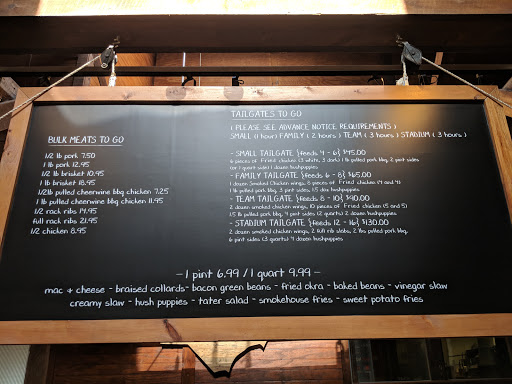 BULK MEATS TO GO
1/2 lb pork 7.50
1 lb pork 12.95
1/2 lb brisket 10.95
1 lb brisket 18.95
1/2lb pulled cheerwine bbq chicken 7.25
1 lb pulled cheerwine bbq chicken 11.95
1/2 rack ribs 14.95
full rack ribs 21.95
1/2 chicken 8.95
TAILGATES TO GO
( PLEASE SEE ADVANCE NOTICE REQUIREMENTS )
SMALL (1 hour) FAMILY ( 2 hours ) TEAM ( 3 hours ) STADIUM ( 3 hours )
- SMALL TAILGATE {feeds 4 - 6} $45.00
6 pieces of Fried chicken (3 white, 3 dark) 1 lb pulled pork bbq, 2 pint sides
(or 1 quart side) 1 dozen hushpuppies
- FAMILY TAILGATE {feeds 6 - 8} $65.00
1 dozen Smoked Chicken wings, 8 pieces of Fried chicken (4 and 4)
1 lb pulled pork bbq, 3 pint sides, 1.5 doz hushpuppies
- TEAM TAILGATE {feeds 8 - 10} $90.00
2 dozen smoked chicken wings, 10 pieces of Fried chicken (5 and 5)
1.5 lb pulled pork bbq, 4 pint sides (2 quarts) 2 dozen hushpuppies
- STADIUM TAILGATE {feeds 12 - 16} $130.00
2 dozen smoked chicken wings, 2 full rib slabs, 2 lbs pulled pork bbq,
6 pint sides (3 quarts) 4 dozen hushpuppies
- 1 pint 6.99 / 1 quart 9.99 -
mac & cheese - braised collards- bacon green beans - fried okra - baked beans - vinegar slaw
creamy slaw - hush puppies - tater salad - smokehouse fries - sweet potato fries